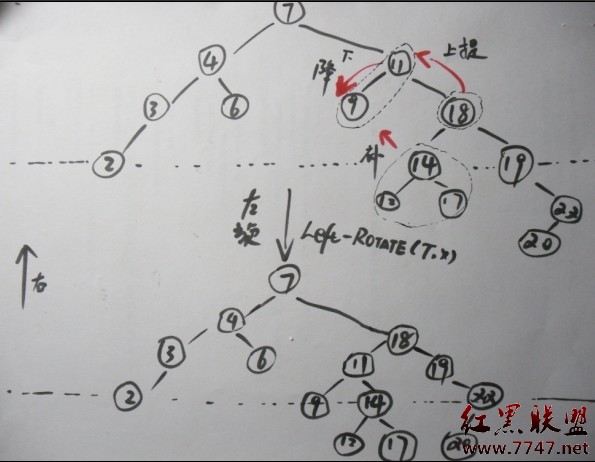 7
4
11
下
降
上提
3
6
9
18
补
14
19
2
13
17
22
20
左
旋
LEFT-ROTATE(T.x)
右
7
4
18
3
6
11
19
2
9
14
22
13
17
20
红黑联盟
www.7747.net